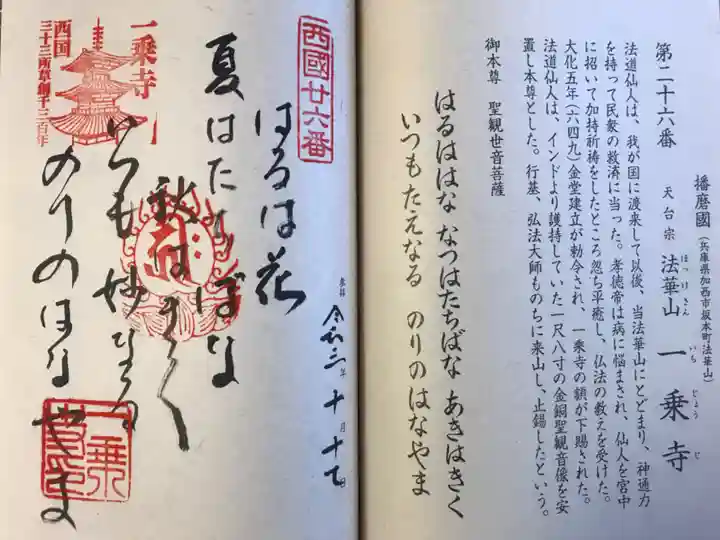 第二十六番
播磨國(兵庫県加西市坂本町法華山)
天台宗 法華山 一乗寺
ほっけさん いちじょうじ
法道仙人は、我が国に渡来して以後、当法華山にとどまり、神通力
を持って民衆の救済に当った。孝徳帝は病に悩まされ、仙人を宮中
に招いて加持祈祷をしたところ忽ち平癒し、仏法の教えを受けた。
大化五年(六四九)金堂建立が勅令され、一乗寺の額が下賜された。
法道仙人は、インドより護持していた一尺八寸の金銅聖観音像を安
置し本尊とした。行基、弘法大師ものちに来山し、止錫したという。
御本尊 聖観世音菩薩
はるははな なつはたちばな あきはきく
いつもたえなる のりのはなやま
西國廿六番
参拝 令和三年十月十七日
はるは花
夏はたちばな
秋はきく
いつも妙なる
のりのはなやま
一乗寺
西国
三十三所草創千三百年
一乗
寺印